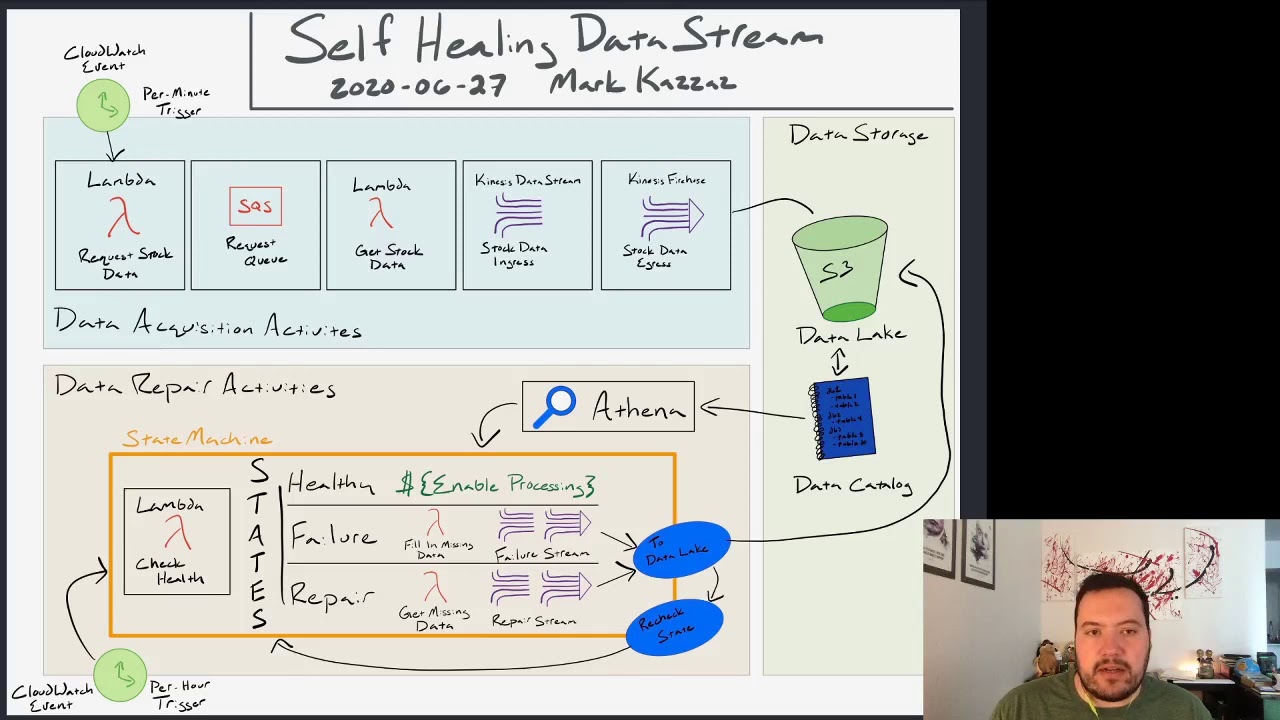 Self Healing Data Stream
2020-06-27 Mark Kazzaz
CloudWatch
Event
Per-Minute
Trigger
Lambda
Request Stock
Data
SQS
Request
Queue
Lambda
Get Stock
Data
Kinesis Data Stream
Stock Data
Ingress
Kinesis Firehose
Stock Data
Egress
Data Acquisition Activites
Data Storage
S3
Data Lake
Data Catalog
Data Repair Activities
Athena
State Machine
Lambda
Check
Health
STATES
Healthy ${Enable Processing}
Failure
Fill In Missing
Data
Failure Stream
Repair
Get Missing
Data
Repair Stream
To
Data Lake
Recheck
State
CloudWatch
Event
Per-Hour
Trigger